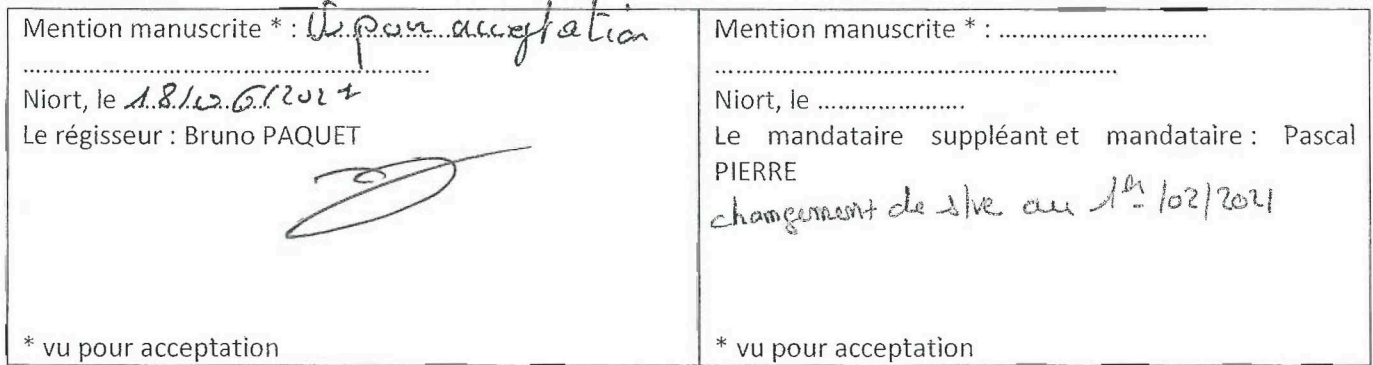 Mention manuscrite * : Vu pour acceptation
..........................................................
Niort, le 18/06/2021
Le régisseur : Bruno PAQUET
* vu pour acceptation
Mention manuscrite * : ..............................
..........................................................
Niort, le .....................
Le mandataire suppléant et mandataire : Pascal
PIERRE
changement de s/ve au 1er/02/2021
* vu pour acceptation